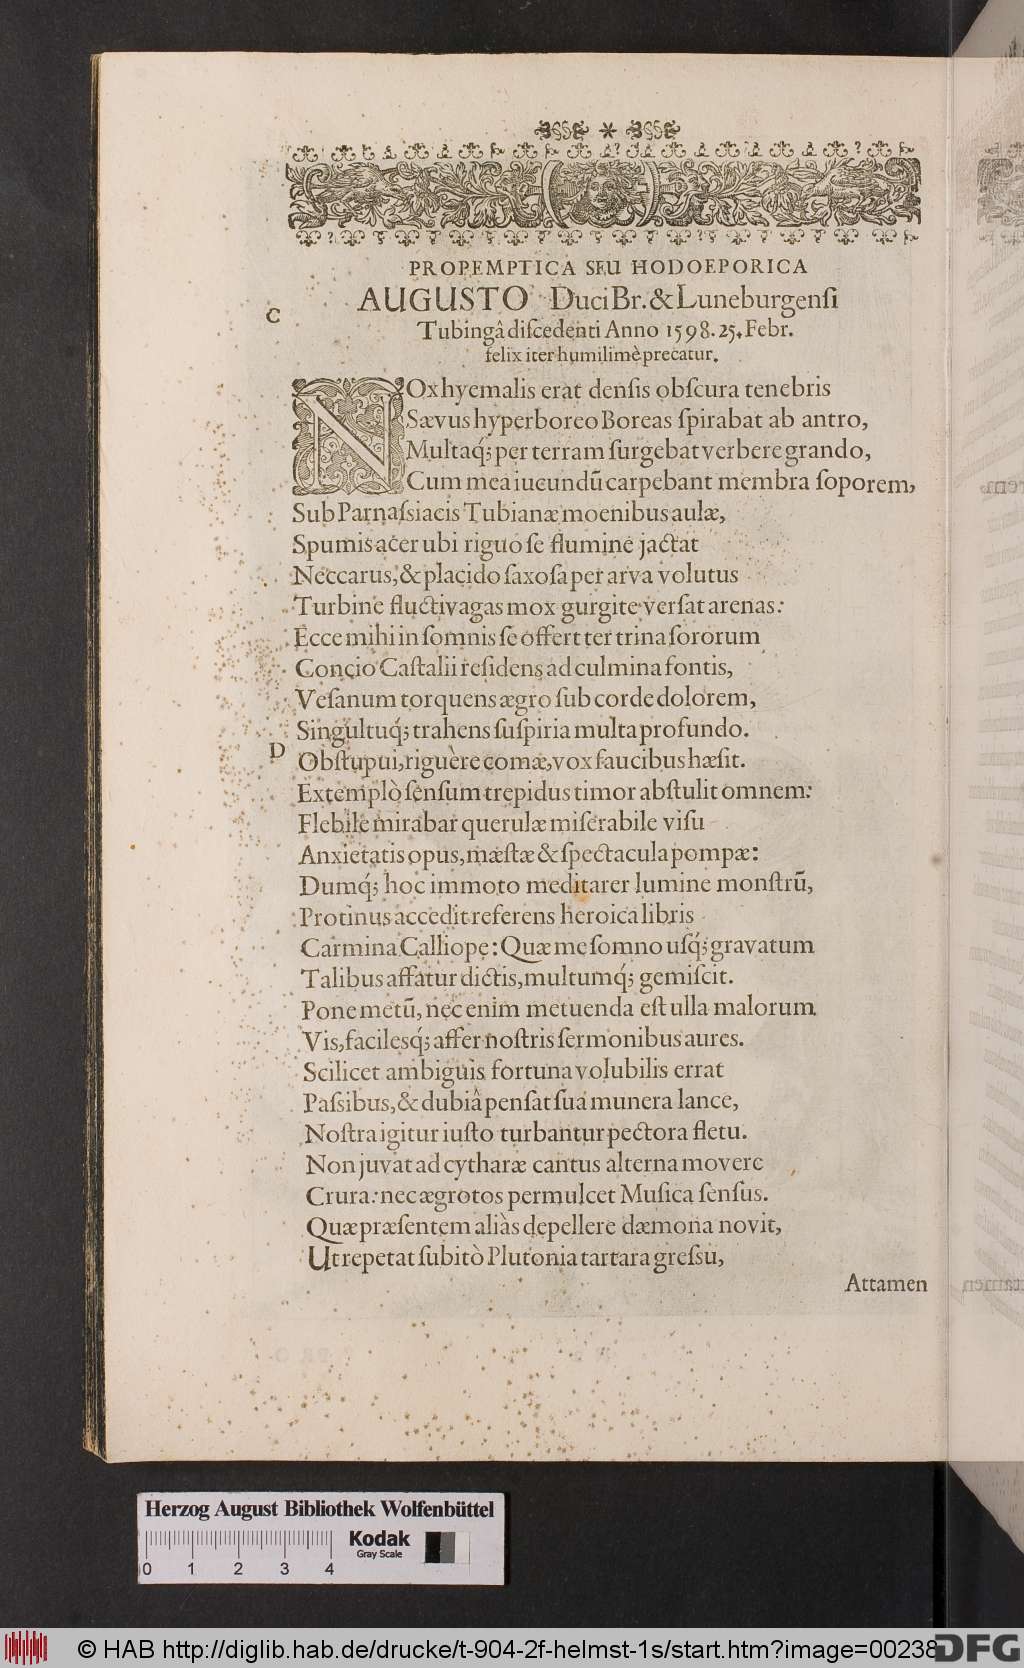 PROPEMPTICA SEU HODOEPORICA
C
AUGUSTO Duci Br. & Luneburgenſi
Tubingâ diſcedenti Anno 1598. 25. Febr.
felix iter humilimè precatur.
NOx hyemalis erat denſis obſcura tenebris
Sævus hyperboreo Boreas ſpirabat ab antro,
Multaq́; per terram ſurgebat verbere grando,
Cum mea iucundū carpebant membra ſoporem,
Sub Parnaſsiacis Tubianæ moenibus aulæ,
Spumis acer ubi riguo ſe flumine jactat
Neccarus, & placido ſaxoſa per arva volutus
Turbine fluctivagas mox gurgite verſat arenas:
Ecce mihi in ſomnis ſe offert ter trina ſororum
Concio Caſtalii reſidens ad culmina fontis,
Veſanum torquens ægro ſub corde dolorem,
Singultuq́; trahens ſuſpiria multa profundo.
D
Obſtupui, riguère comæ, vox faucibus hæſit.
Extemplò ſenſum trepidus timor abſtulit omnem:
Flebile mirabar querulæ miſerabile viſu
Anxietatis opus, mæſtæ & ſpectacula pompæ:
Dumq́; hoc immoto meditarer lumine monſtrū,
Protinus accedit referens heroica libris
Carmina Calliope: Quæ me ſomno uſq́; gravatum
Talibus affatur dictis, multumq́; gemiſcit.
Pone metū, nec enim metuenda eſt ulla malorum
Vis, facilesq́; affer noſtris ſermonibus aures.
Scilicet ambiguis fortuna volubilis errat
Paſsibus, & dubiâ penſat ſua munera lance,
Noſtra igitur iuſto turbantur pectora fletu.
Non juvat ad cytharæ cantus alterna movere
Crura: nec ægrotos permulcet Muſica ſenſus.
Quæ præſentem aliàs depellere dæmona novit,
Ut repetat ſubitò Plutonia tartara greſsu,
Attamen
Herzog August Bibliothek Wolfenbüttel
Kodak
Gray Scale
0 1 2 3 4
© HAB http://diglib.hab.de/drucke/t-904-2f-helmst-1s/start.htm?image=00238
DFG